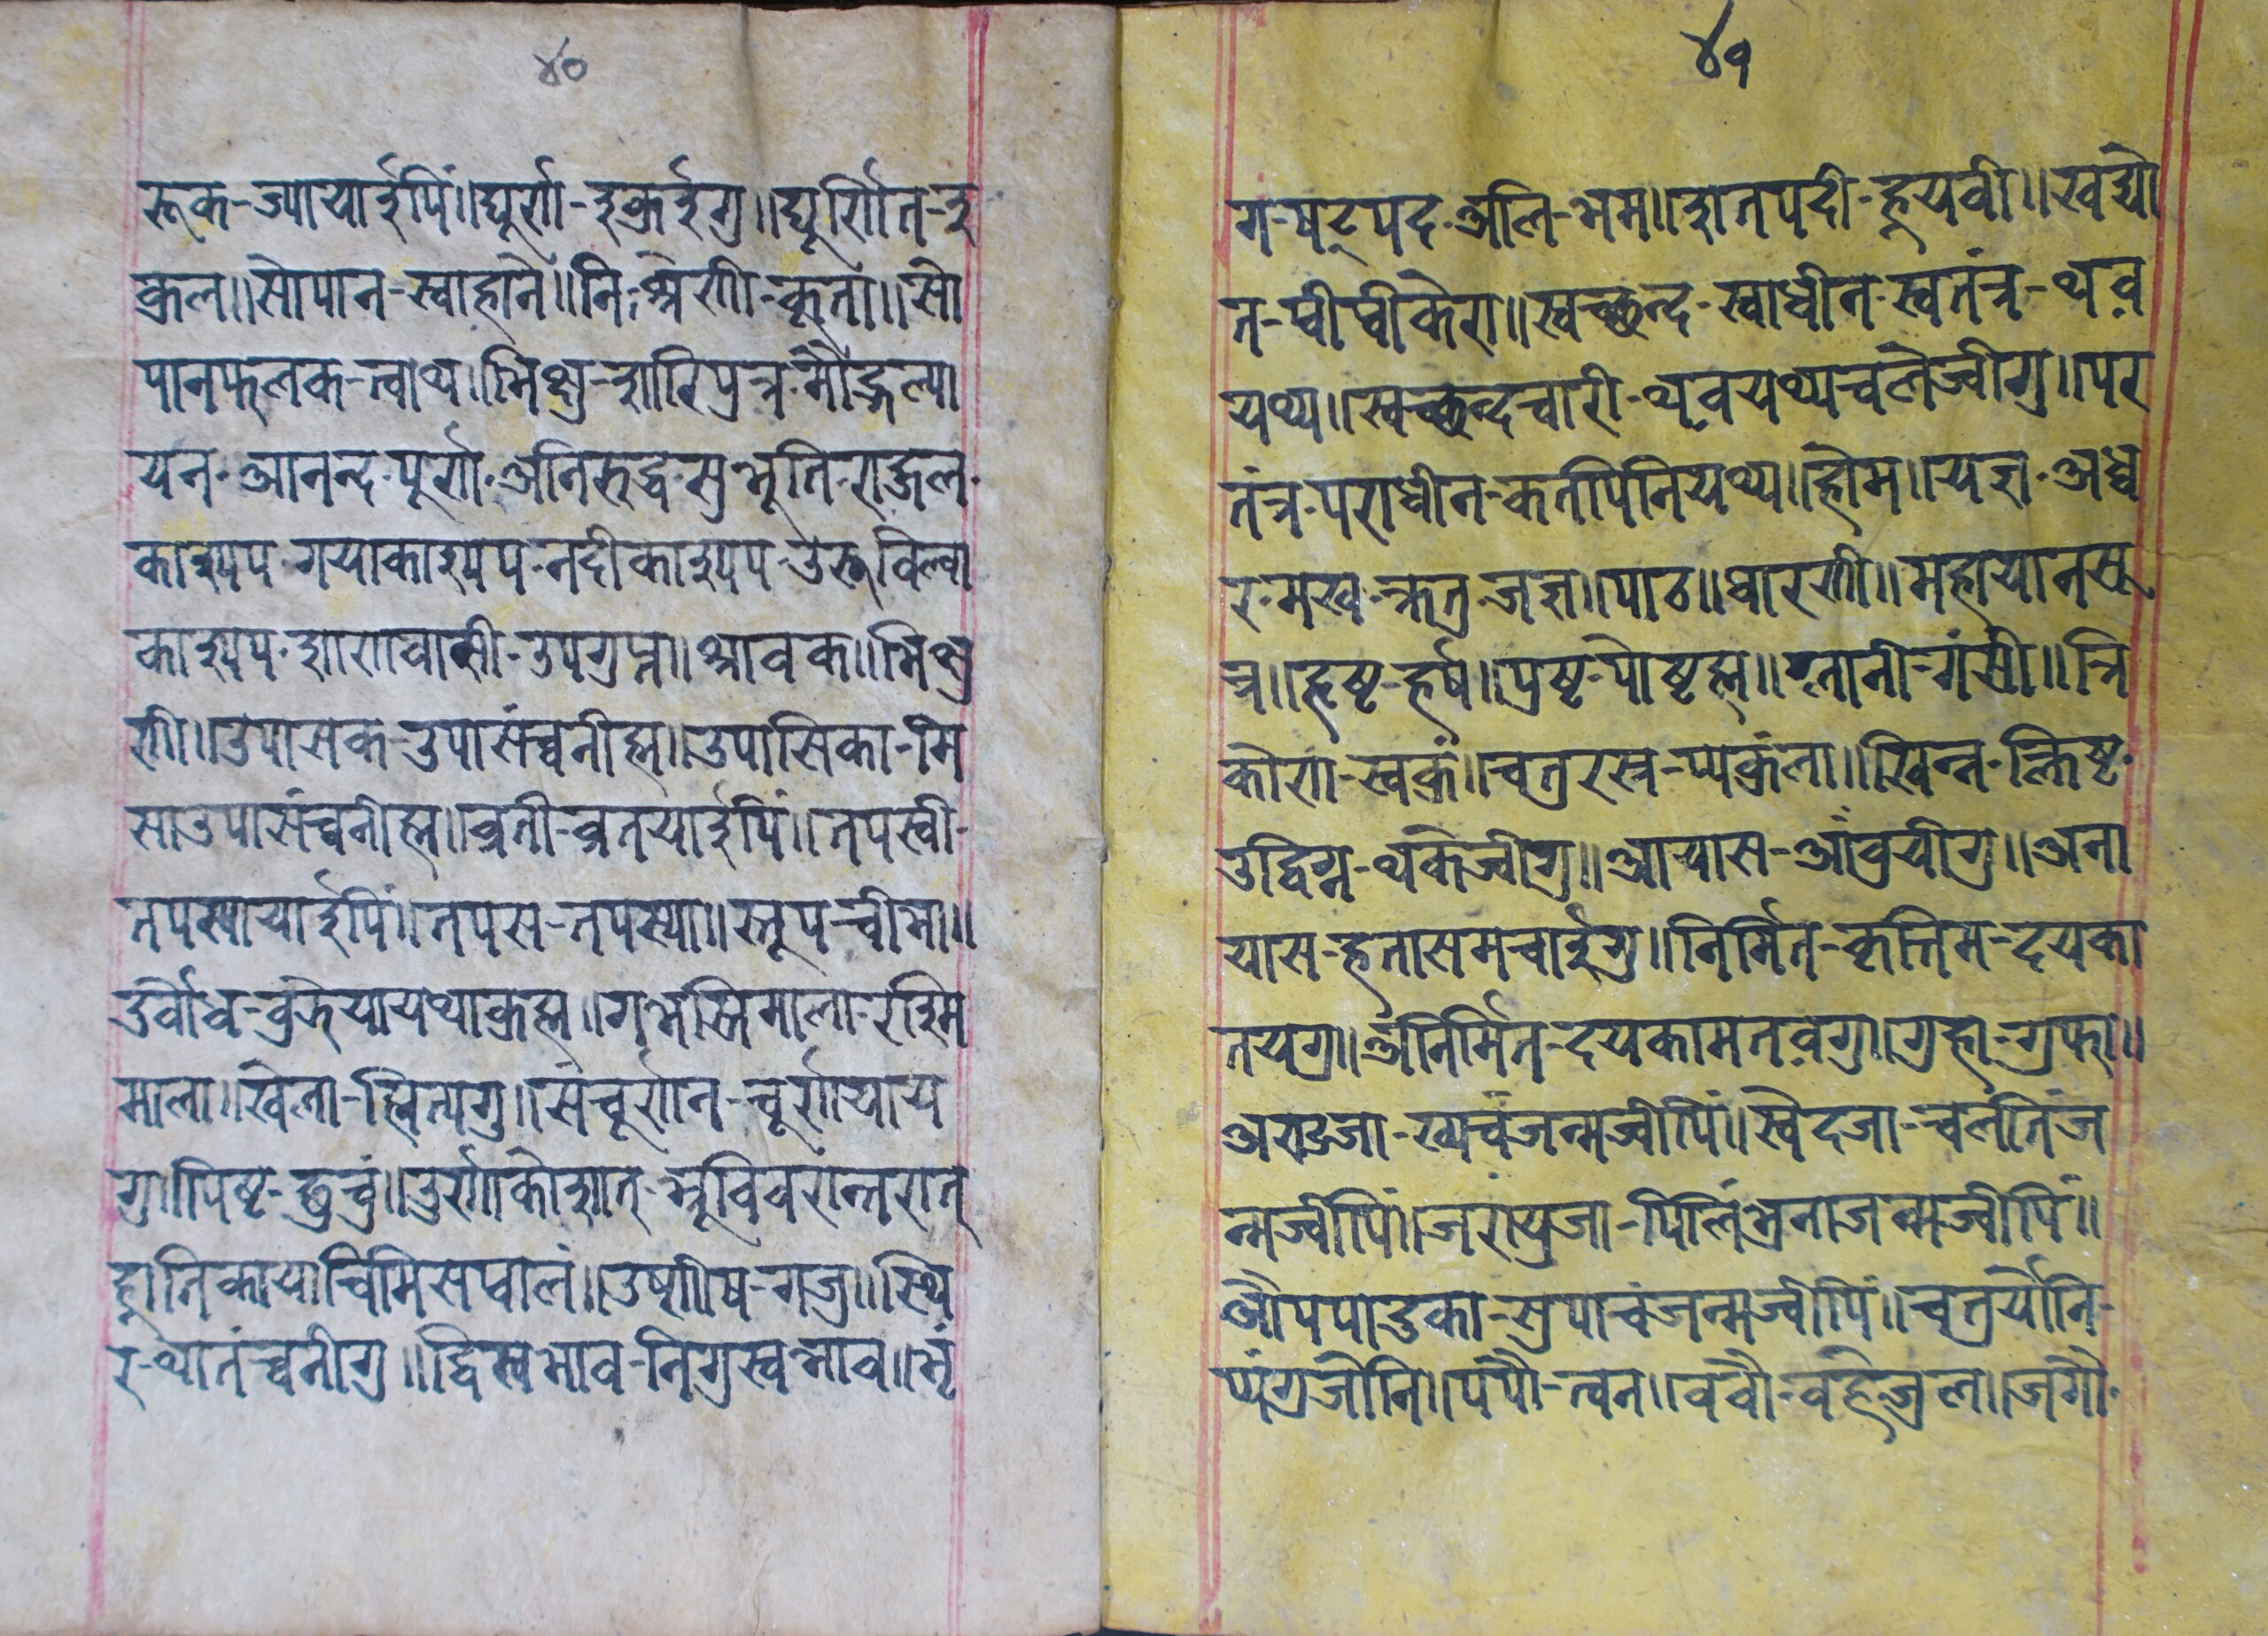 ४०
रूक-ज्यायार्इपिं॥घुर्रा-डुक्रर्इगु॥घूर्णित-डु
क्रल॥सोपान-स्वाहाने॥निःश्रेणी-कृता॥सो
पानफलक-त्वाथ्य॥भिक्षु-शारिपुत्र-मौद्गल्या
यन-आनन्द-पूर्ण-अनिरुद्ध-सुभूति-राहुल-
काश्यप-गयाकाश्यप-नदीकाश्यप-उरूविल्वा
काश्यप-शाणवासी-उपगुप्त॥श्रावक॥भिक्षु
णी॥उपासक-उपासंच्वनीह्म॥उपासिका-मि
साउपासंच्वनीह्म॥व्रती-व्रतयार्इपिं॥तपस्वी-
तपस्यायार्इपिं॥तपस-तपस्या॥स्तूप-चीभा॥
दुर्बोध-बुझेयायथाक्रह्म॥गभस्तिमाला-रश्मि
माला॥खेला-ह्मित्यगु॥संचूर्णन-चूर्णयाय
गु॥पिष्ट-छुचुं॥उर्णाकोशात्-भ्रूविवरान्तरात्
ह्नातिकायाचिमिसघालं॥उष्णीष-गजु॥स्थि
र-थातंच्वनीगु॥द्विस्वभाव-निगुस्वभाव॥भृं
४१
ग-षट्पद-अलि-भम॥शतपदी-हूयवी॥खद्यो
त-प्वीप्वीकेरा॥स्वच्छन्द-स्वाधीन-स्वतंत्र-थव
यथ्य॥स्वच्छन्दचारी-थवयथ्यचलेज्वीगु॥पर
तंत्र-पराधीन-कतपिनियथ्य॥होम॥यज्ञ-अध्व
र-मख-क्रतु-जज्ञ॥पाठ॥धारणी॥महायानसू
त्र॥हृष्ट-हर्ष॥पुष्ट-पोष्टह्म॥ग्लानी-गंसी॥त्रि
कोण-स्वकुं॥चतुरस्र-प्यकुंला॥खिन्न-क्लिष्ट-
उद्विग्न-थकेज्वीगु॥आयास-आंवुयीगु॥अना
यास-हतासमचार्इगु॥निर्मित-कृत्तिम-दयका
तयगु॥अनिर्मित-दयकामतवगु॥गुहा-गुफा॥
अण्डजा-ख्यचंजन्मज्वीपिं॥स्वेदजा-चलतिंज
न्मज्वीपिं॥जरायुजा-पिलिंभनाजन्मज्वीपिं॥
औपपादुका-सुपाचंजन्मज्वीपिं॥चतुर्योनि-
प्यंगुजोनि॥पपौ-त्वन॥ववौ-वहेजुल॥जगौ-